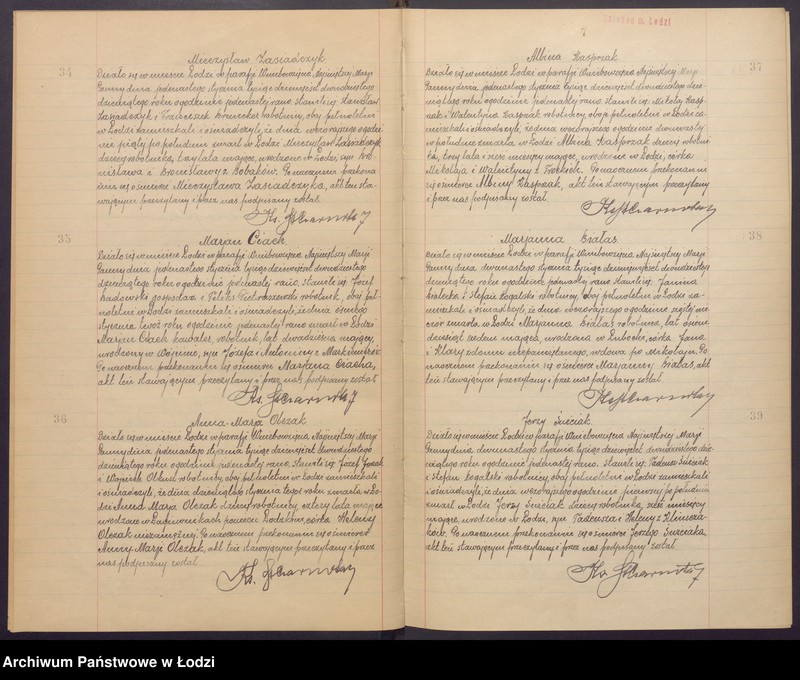 34
Mieczysław Zasiadczyk
Działo się w mieście Łodzi w parafji Wniebowzięcia Najświętszej Marji
Panny dnia jedenastego stycznia tysiąc dziewięćset dwudziestego
dziewiątego roku o godzinie jedenastej rano. Stawili się Stanisław
Zasiadczyk i Franciszek robotnicy, obaj pełnoletni
w Łodzi zamieszkali i oświadczyli, że dnia wczorajszego o godzi-
nie piątej po południu zmarł w Łodzi Mieczysław Zasiadczyk
dziecię robotnika, lata mające, urodzone w Łodzi, syn Sta-
nisława i Bronisławy z Bobaków. Po naocznem przekona-
niu się o śmierci Mieczysława Zasiadczyka, akt ten sta-
wającym przeczytany i przez nas podpisany został.
Ks.
35
Marjan Ciach
Działo się w mieście Łodzi w parafji Wniebowzięcia Najświętszej Marji
Panny dnia jedenastego stycznia tysiąc dziewięćset dwudziestego
dziewiątego roku o godzinie jedenastej rano, stawili się Józef
Sadowski gospodarz i Feliks Pietraszewski robotnik, obaj peł-
noletni w Łodzi zamieszkali i oświadczyli, że dnia ósmego
stycznia t.woż roku, o godzinie jedenastej rano zmarł w Łodzi
Marjan Ciach kawaler, robotnik, lat dwadzieścia mający,
urodzony w syn Józefa i Antoniny z
Po naocznem przekonaniu się o śmierci Marjana Ciacha,
akt ten stawającym przeczytany i przez nas podpisany został
Ks.
36
Anna-Marja Olczak
Działo się w mieście Łodzi w parafji Wniebowzięcia Najświętszej Marji
Panny dnia jedenastego stycznia tysiąc dziewięćset dwudziestego
dziewiątego roku o godzinie jedenastej rano. Stawili się Józef
i Wojciech robotnicy, obaj pełnoletni w Łodzi zamieszkali
i oświadczyli, że dnia dziewiątego stycznia tegoż roku zmarła w Ło-
dzi Anna Marja Olczak dziecię robotnicy, cztery lata mające
urodzone w powiecie Łódzkim, córka Heleny
Olczak niezamężnej. Po naocznem przekonaniu się o śmierci
Anny Marji Olczak, akt ten stawającym przeczytany i przez
nas podpisany został
Ks.
7
37
Albina Kasprzak
Działo się w mieście Łodzi w parafji Wniebowzięcia Najświętszej Marji
Panny dnia jedenastego stycznia tysiąc dziewięćset dwudziestego dzie-
wiątego roku o godzinie jedenastej rano stawili się Mikołaj Kasp-
rzak i Walentyna Kasprzak robotnicy, oboje pełnoletni w Łodzi za-
mieszkali i oświadczyli, że dnia wczorajszego o godzinie dwunastej
w południe zmarła w Łodzi Albina Kasprzak dziecię robotni-
ka, trzy lata i sześć miesięcy mające, urodzone w Łodzi, córka
Mikołaja i Walentyny z Po naocznem przekonaniu
się o śmierci Albiny Kasprzak, akt ten stawającym przeczytany
i przez nas podpisany został.
Ks.
38
Marjanna Białas
Działo się w mieście Łodzi w parafji Wniebowzięcia Najświętszej Marji
Panny dnia dwunastego stycznia tysiąc dziewięćset dwudziestego
dziewiątego roku o godzinie jedenastej rano. Stawili się: Janina
Białecka i Stefan Rogalski robotnicy, oboje pełnoletni w Łodzi za-
mieszkali i oświadczyli, że dnia wczorajszego o godzinie szóstej wie-
czór zmarła w Łodzi Marjanna Białas, robotnica, lat ośm-
dziesiąt siedem mająca, urodzona w córka Jana
i Klary z domu niepamiętnego, wdowa po Mikołaju. Po
naocznem przekonaniu się o śmierci Marjanny Białas, akt
ten stawającym przeczytany i przez nas podpisany został
Ks.
39
Jerzy Świeciak
Działo się w mieście Łodzi w parafji Wniebowzięcia Najświętszej Marji
Panny dnia dwunastego stycznia tysiąc dziewięćset dwudziestego dzie-
wiątego roku o godzinie jedenastej rano. Stawili się: Tadeusz Świeciak
i Stefan Rogalski robotnicy, obaj pełnoletni w Łodzi zamieszkali
i oświadczyli, że dnia wczorajszego o godzinie pierwszej po południu
zmarł w Łodzi Jerzy Świeciak dziecię robotnika, sześć miesięcy
mające, urodzone w Łodzi, syn Tadeusza i Heleny z Klimcza-
ków. Po naocznem przekonaniu się o śmierci Jerzego Świeciaka,
akt ten stawającym przeczytany i przez nas podpisany został
Ks.
Archiwum Państwowe w Łodzi